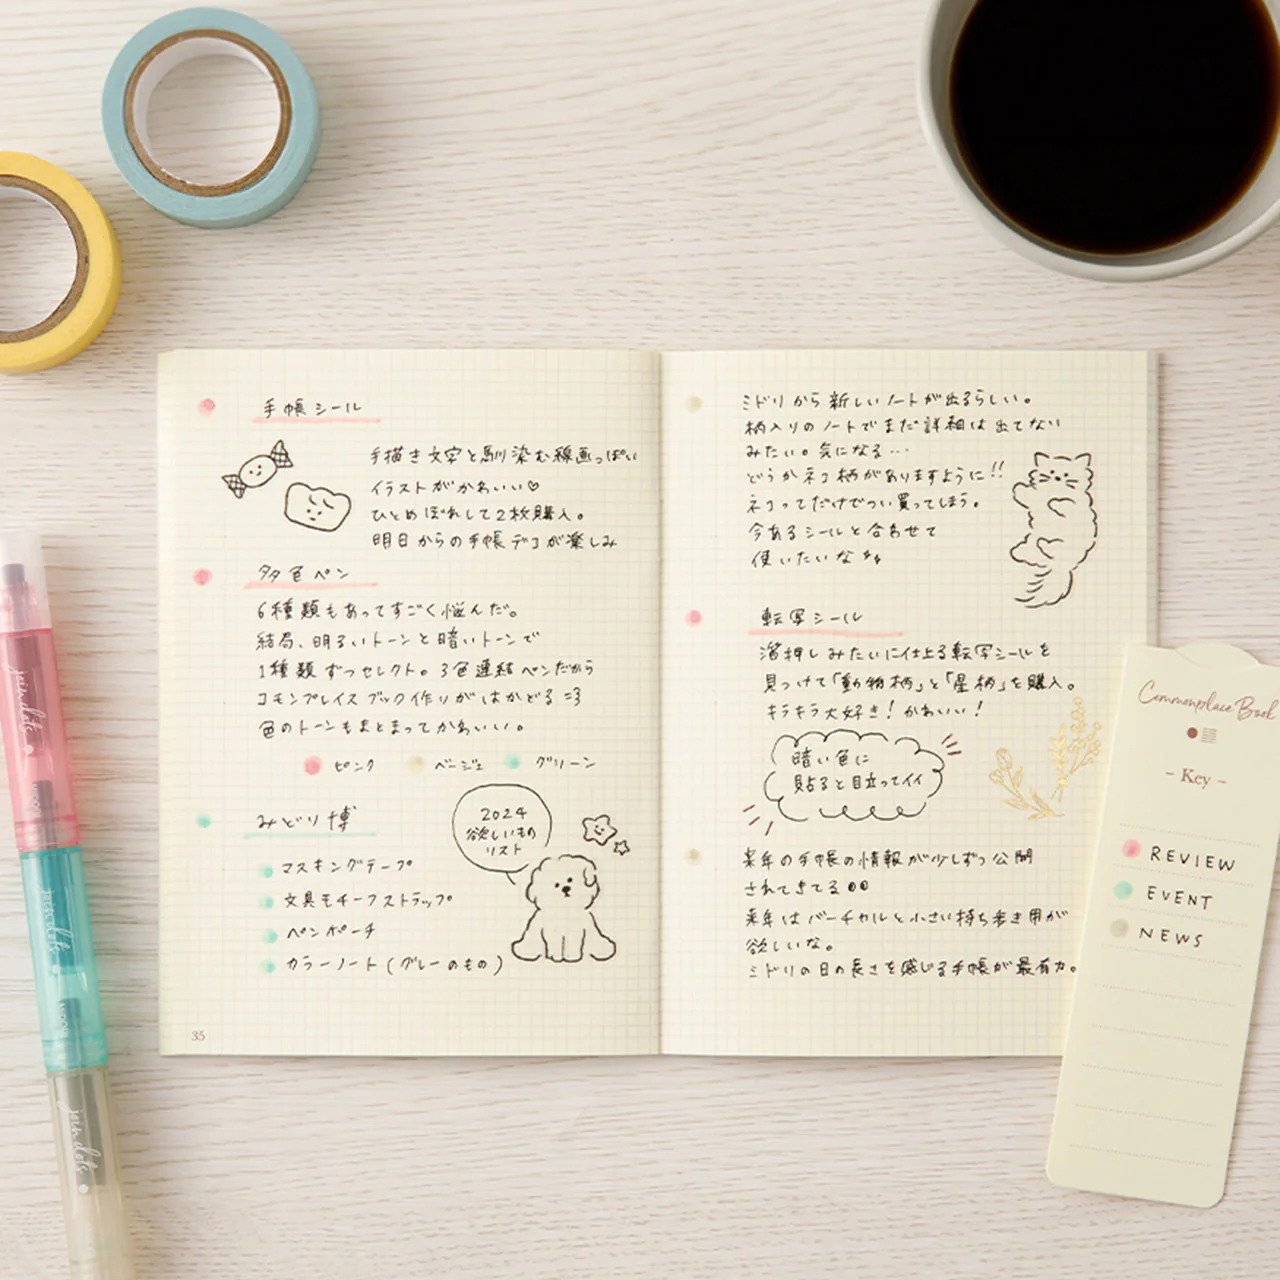 手帳シール
手描き文字と馴染む線画っぽい
イラストがかわいい♡
ひとめぼれして2枚購入。
明日からの手帳デコが楽しみ
多色ペン
6種類もあってすごく悩んだ。
結局、明るいトーンと暗いトーンで
1種類ずつセレクト。3色連結ペンだから
コモンプレイスブック作りがはかどる
色のトーンもまとまってかわいい。
ピンク ベージュ グリーン
みどり博
2024
欲しいもの
リスト
マスキングテープ
文具モチーフストラップ
ペンポーチ
カラーノート(グレーのもの)
35
ミドリから新しいノートが出るらしい。
柄入りのノートでまだ詳細は出てない
みたい。気になる…
どうかネコ柄がありますように!!
ネコってだけでつい買ってしまう。
今あるシールと合わせて
使いたいな
転写シール
箔押しみたいに仕上る転写シールを
見つけて「動物柄」と「星柄」を購入。
キラキラ大好き!かわいい!
暗い色に
貼ると目立ってイイ
来年の手帳の情報が少しずつ公開
されてきてる
来年はバーチカルと小さい持ち歩き用が
欲しいな。
ミドリの日の長さを感じる手帳が最有力。
Commonplace Book
- Key -
REVIEW
EVENT
NEWS
join dots
join dots
join dots